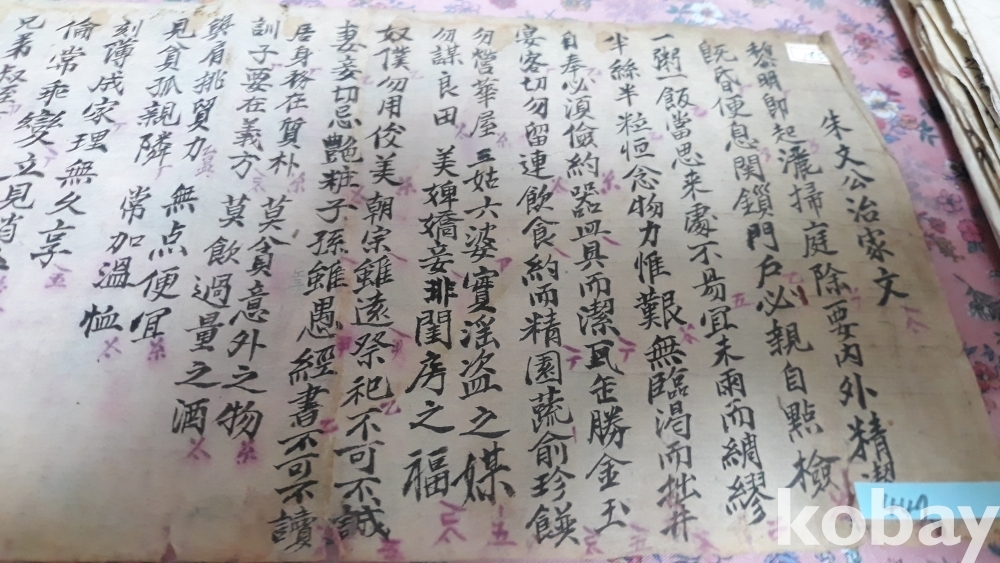 朱文公治家文
黎明即起灑掃庭除要内外精潔
旣昏便息関鎖門戶必親自點檢
一粥一飯當思来處不易宜未雨而綢繆
半絲半粒恒念物力惟艱無臨渴而拙井
自奉必湏儉約器皿具而潔瓦缶勝金玉
宴客切勿留連飲食約而精園蔬俞珍饌
勿營華屋 三姑六婆實滛盗之媒
勿謀良田 美婢嬌妾非閨房之福
奴僕勿用俊美朝宗雖遠祭祀不可不誠
妻妾切忌艶粧子孫雖愚經書不可不讀
居身務在質朴 莫貪意外之物
訓子要在義方 莫飲過量之酒
與肩挑貿力 無点便宜
見貧孤親隣 常加溫恤
刻薄成家理無久享
倫常乖變立見消
兄弟叔侄
kobay